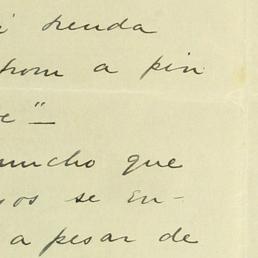 renda
from a pin
e"—
mucho que
os se en-
a pesar de